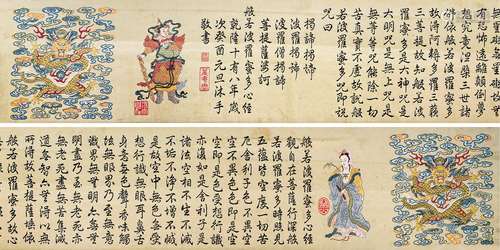 般若波羅蜜多心經
觀自在菩薩行深般
若波羅蜜多時照見
五蘊皆空度一切苦
厄舍利子色不異空
空不異色色即是空
空即是色受想行識
亦復如是舍利子是
諸法空相不生不滅
不垢不淨不增不減
是故空中無色無受
想行識無眼耳鼻舌
身意無色聲香味觸
法無眼界乃至無意
識界無無明亦無無
明盡乃至無老死亦
無老死盡無苦集滅
道無智亦無得以無
所得故菩提薩埵依
般若波羅蜜多故
有恐怖遠離顛倒夢
想究竟涅槃三世諸
佛依般若波羅蜜多
故得阿耨多羅三藐
三菩提故知般若波
羅蜜多是大神咒是
大明咒是無上咒是
無等等咒能除一切
苦真實不虛故說般
若波羅蜜多咒即說
咒曰
揭諦揭諦
波羅揭諦
波羅僧揭諦
菩提薩婆訶
般若波羅蜜多心經
乾隆十有八年歲
次癸酉元旦沐手
敬書